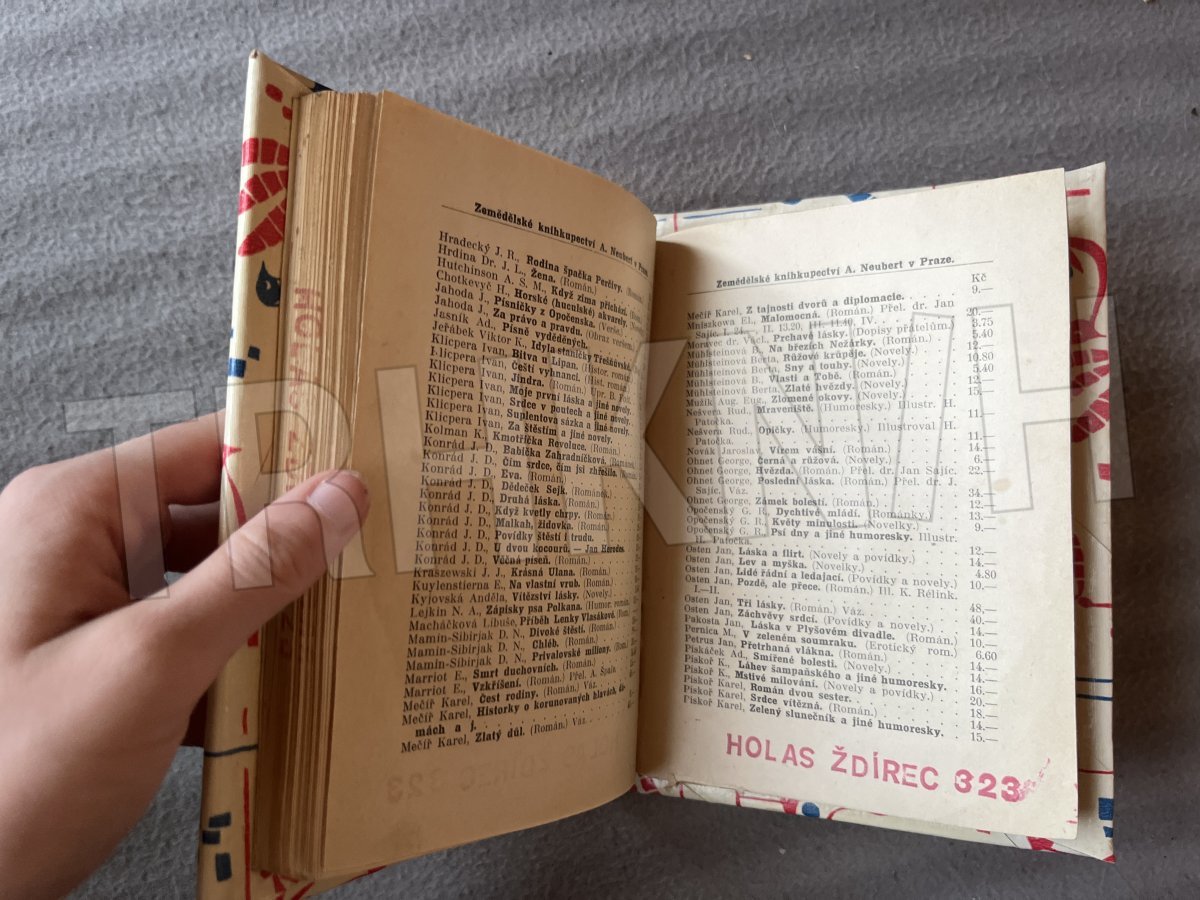 Zemědělské knihkupectví A. Neubert v Praze.
Hradecký J. R., Rodina špačka Perčivy. (Román)
Hrdina Dr. J. L., Žena. (Román.)
Hutchinson A. S. M., Když zima přichází.
Chotkevyč H., Horské (huculské) akvarely.
Jahoda J., Písničky z Opočenska. (Verše.)
Jahoda J., Za právo a pravdu. (Obraz veršem.)
Jasník Ad., Písně vyděděných.
Jeřábek Viktor K., Idyla staničky Třeštěvské.
Klicpera Ivan, Bitva u Lipan. (Histor. román
Klicpera Ivan, Čeští vyhnanci. (Hist. román
Klicpera Ivan, Jindra. (Román.) Upr. B.
Klicpera Ivan, Moje první láska a jiné novely.
Klicpera Ivan, Srdce v poutech a jiné novely.
Klicpera Ivan, Suplentova sázka a jiné novely.
Klicpera Ivan, Za štěstím a jiné novely.
Kolman K., Kmotřička Revoluce. (Román.)
Konrád J. D., Babička Zahradníčková.
Konrád J. D., Čím srdce, čím jsi zhřešilo.
Konrád J. D., Eva. (Román.)
Konrád J. D., Dědeček Sejk. (Románek.
Konrád J. D., Druhá láska. (Román.)
Konrád J. D., Když kvetly chrpy. (Román.)
Konrád J. D., Malkah, židovka. (Román.)
Konrád J. D., Povídky štěstí i trudu.
Konrád J. D., U dvou kocourů. — Jan Herodes.
Konrád J. D., Věčná píseň. (Román.)
Kraszewski J. J., Krásná Ulana. (Román.)
Kuylenstierna E., Na vlastní vrub. (Román.)
Kyjovská Anděla, Vítězství lásky. (Román.)
Lejkin N. A., Zápisky psa Polkana. (Humor. román.)
Macháčková Libuše, Příběh Lenky Vlasákové.
Mamin-Sibirjak D. N., Divoké štěstí. (Román.)
Mamin-Sibirjak D. N., Chléb. (Román.)
Mamin-Sibirjak D. N., Privalovské miliony.
Marriot E., Smrt duchovních. (Román.)
Marriot E., Vzkříšení. (Román.) Přel. A. Špaik
Mečíř Karel, Čest rodiny. (Román.) Váz.
Mečíř Karel, Historky o korunovaných hlavách dámách a j.
Mečíř Karel, Zlatý důl. (Román.) Váz.
Zemědělské knihkupectví A. Neubert v Praze.
Kč
Mečíř Karel, Z tajností dvorů a diplomacie. 9.—
Mniszkowa El., Malomocná. (Román.) Přel. dr. Jan
Sajíc. I. 24.—, II. 13.20, III. 11.40, IV. 20.—
Moravec dr. Václ., Prchavé lásky. (Dopisy přátelům.) 3.75
Mühlsteinová B., Na březích Nežárky. (Román.) 5.40
Mühlsteinová Berta, Růžové krůpěje. (Novely.) 12.—
Mühlsteinová Berta, Sny a touhy. (Novely.) 10.80
Mühlsteinová B., Vlasti a Tobě. (Román.) 5.40
Mühlsteinová Berta, Zlaté hvězdy. (Novely.) 12.—
Mužík Aug. Eug., Zlomené okovy. (Novely.) 15.—
Nešvera Rud., Mraveniště. (Humoresky.) Illustr. H.
Patočka. 11.—
Nešvera Rud., Opičky. (Humoresky.) Illustroval H.
Patočka. 11.—
Novák Jaroslav, Vírem vášní. (Román.) 14.—
Ohnet George, Černá a růžová. (Novely.) 6.—
Ohnet George, Hvězda. (Román.) Přel. dr. Jan Sajíc. 22.—
Ohnet George, Poslední láska. (Román.) Přel. dr. J.
Sajíc. Váz. 34.—
Ohnet George, Zámek bolestí. (Román.) 12.—
Opočenský G. R., Dychtivé mládí. (Románky.) 13.—
Opočenský G. R., Květy minulosti. (Novelky.) 9.—
Opočenský G. R., Psí dny a jiné humoresky. Illustr.
H. Patočka. 12.—
Osten Jan, Láska a flirt. (Novely a povídky.) 14.—
Osten Jan, Lev a myška. (Novelky.) 4.80
Osten Jan, Lidé řádní a ledajací. (Povídky a novely.) 10.—
Osten Jan, Pozdě, ale přece. (Román.) Ill. K. Rélink.
I.—II. 48.—
Osten Jan, Tři lásky. (Román.) Váz. 40.—
Osten Jan, Záchvěvy srdcí. (Povídky a novely.) 14.—
Pakosta Jan, Láska v Plyšovém divadle. (Román.) 10.—
Pernica M., V zeleném soumraku. (Erotický rom.) 6.60
Petrus Jan, Přetrhaná vlákna. (Román.) 14.—
Piskáček Ad., Smířené bolesti. (Novely.) 14.—
Piskoř K., Láhev šampaňského a jiné humoresky. 16.—
Piskoř K., Mstivé milování. (Novely a povídky.) 20.—
Piskoř Karel, Román dvou sester. 18.—
Piskoř Karel, Srdce vítězná. (Román.) 14.—
Piskoř Karel, Zelený slunečník a jiné humoresky. 15.—
HOLAS ŽDÍREC 323
TRIKNIH